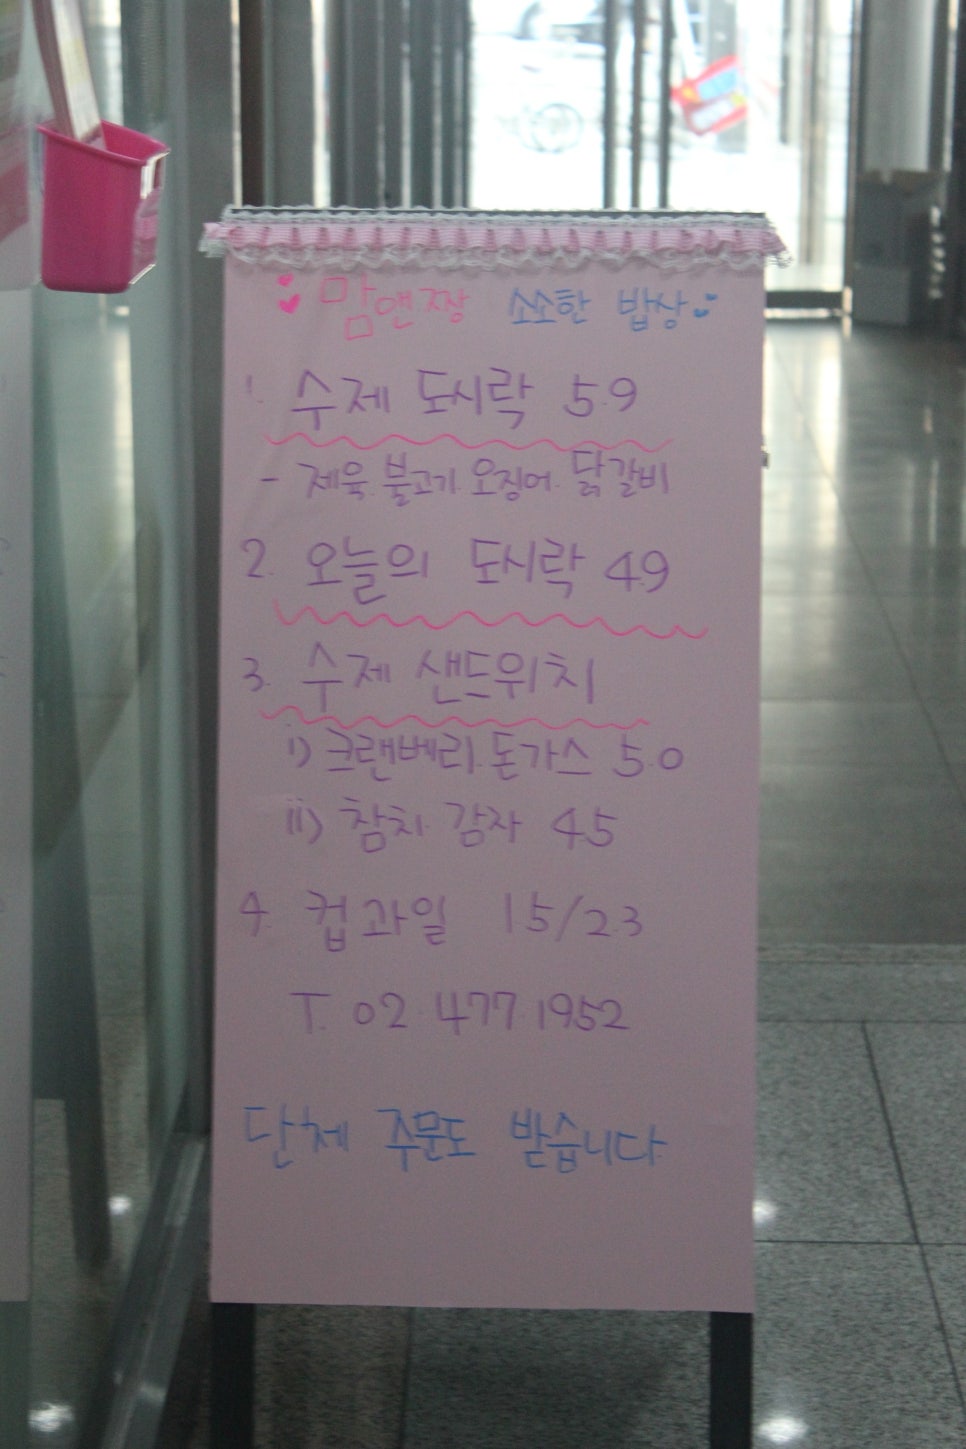 맘앤짱 소소한 밥상
1. 수제 도시락 5.9
- 제육. 불고기. 오징어. 닭갈비
2. 오늘의 도시락 4.9
3. 수제 샌드위치
i) 크랜베리. 돈가스 5.0
ii) 참치. 감자 4.5
4. 컵과일 1.5/2.3
T. 02. 477. 1952
단체 주문도 받습니다